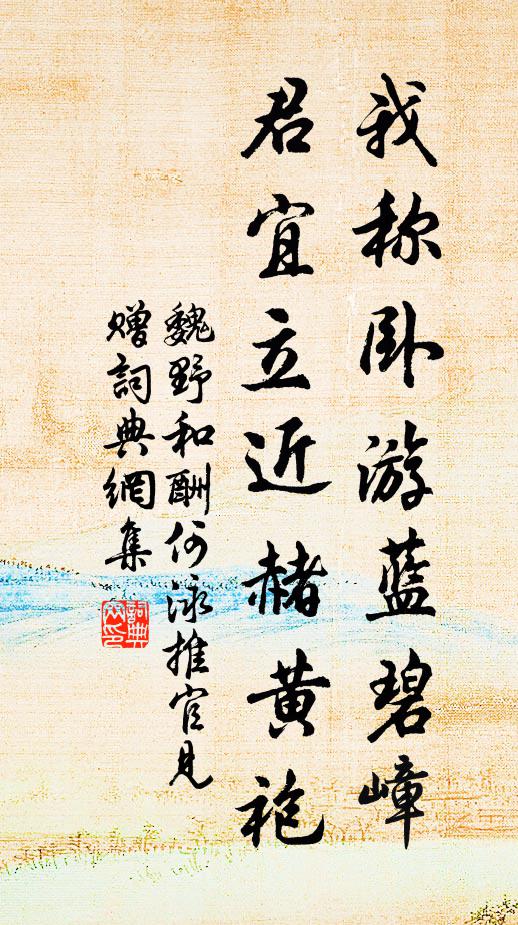 我称卧游蓝碧嶂
君宜立近赭黄袍
魏野和酬何泳推官见
赠詞典網集
詞典